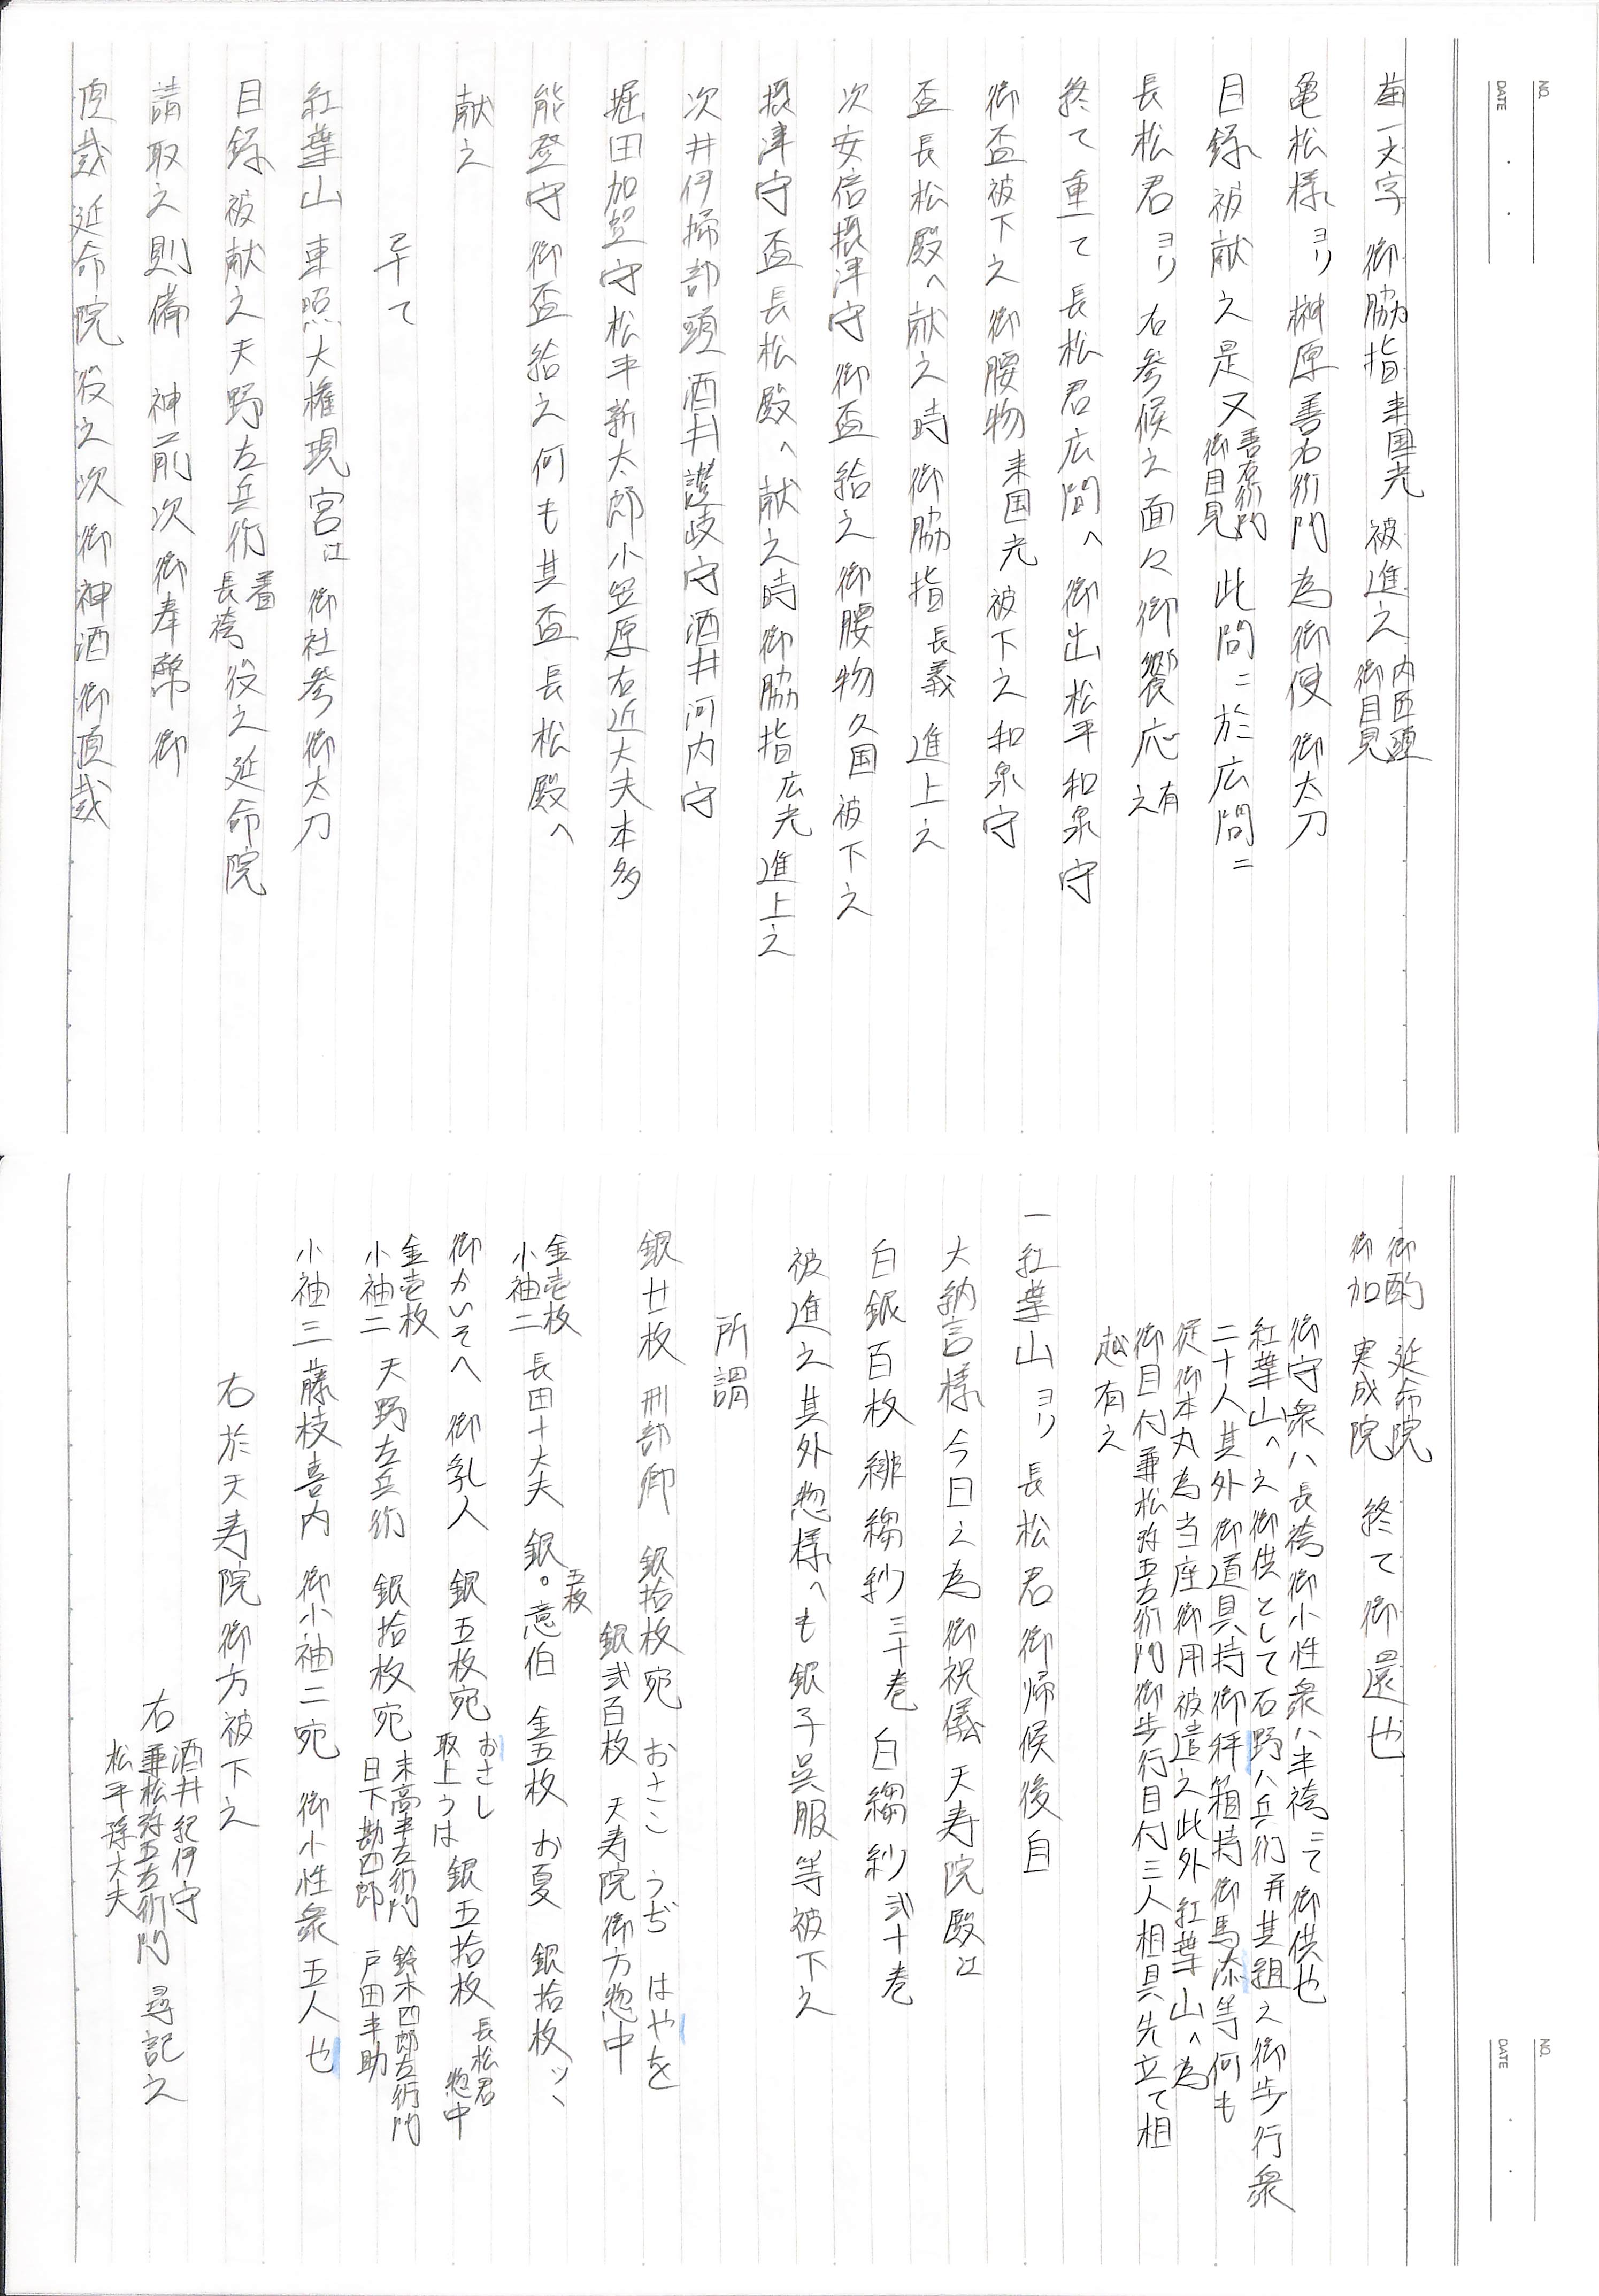 NO.
DATE
菊一文字 御脇指 来国光 被進之 内匠頭 御目見
亀松様ヨリ 榊原善右衛門為御使 御太刀
目録被献之是又 善右衛門 御目見 此間ニ於広間ニ
長松君ヨリ 右参候之面々御饗応有之
終て重て長松君広間へ御出松平和泉守
御盃被下之御腰物 来国光 被下之和泉守
盃長松殿へ献之時御脇指 長義 進上之
次安倍摂津守御盃給之御腰物 久国 被下之
摂津守盃長松殿へ献之時御脇指 広光 進上之
次井伊掃部頭酒井讃岐守酒井河内守
堀田加賀守松平新太郎小笠原右近大夫本多
能登守御盃給之何も其盃長松殿へ
献之
畢て
紅葉山東照大権現宮江御社参御太刀
目録被献之天野左兵衛 着長袴 役之延命院
請取之則備 神前次御奉幣御
頂戴延命院役之次御神酒御頂戴
NO.
DATE
御酌 延命院
御加 実成院 終て御還也
御守衆ハ長袴御小性衆ハ半袴ニて御供也
紅葉山へ之御供として石野八兵衛并其組之御歩行衆
二十人其外御道具持御挟箱持御馬添等何も
従御本丸為当座御用被遣之此外紅葉山へ為
御目付兼松弥五左衛門御歩行目付三人相具先立て相
越有之
一紅葉山ヨリ長松君御帰候後自
大納言様今日之為御祝儀天寿院殿江
白銀百枚緋縐紗三十巻白縐紗弐十巻
被進之其外惣様へも銀子呉服等被下之
所謂
銀廿枚 刑部卿 銀拾枚宛 おさこ うぢ はやを
銀弐百枚 天寿院御方惣中
金壱枚 小袖二 長田十大夫 銀五枚 意伯 金五枚 お夏 銀拾枚ツヽ
御かいそへ 御乳人 銀五枚宛 おさし 取上うは 銀五拾枚 長松君惣中
金壱枚 小袖二 天野左兵衛 銀拾枚宛 末高半左衛門 日下勘四郎 鈴木四郎左衛門 戸田半助
小袖三 藤枝喜内 御小袖二宛 御小性衆五人也
右於天寿院御方被下之
右 酒井紀伊守 兼松弥五左衛門 松平孫大夫 尋記之